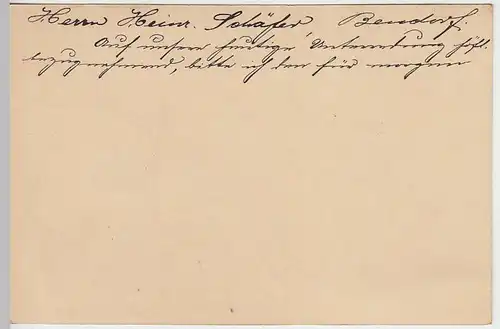 Herrn Heinr. Schäfer Bendorf.
Auf unsere heutige Unterredung höfl.
bezugnehmend, bitte ich den für morgen